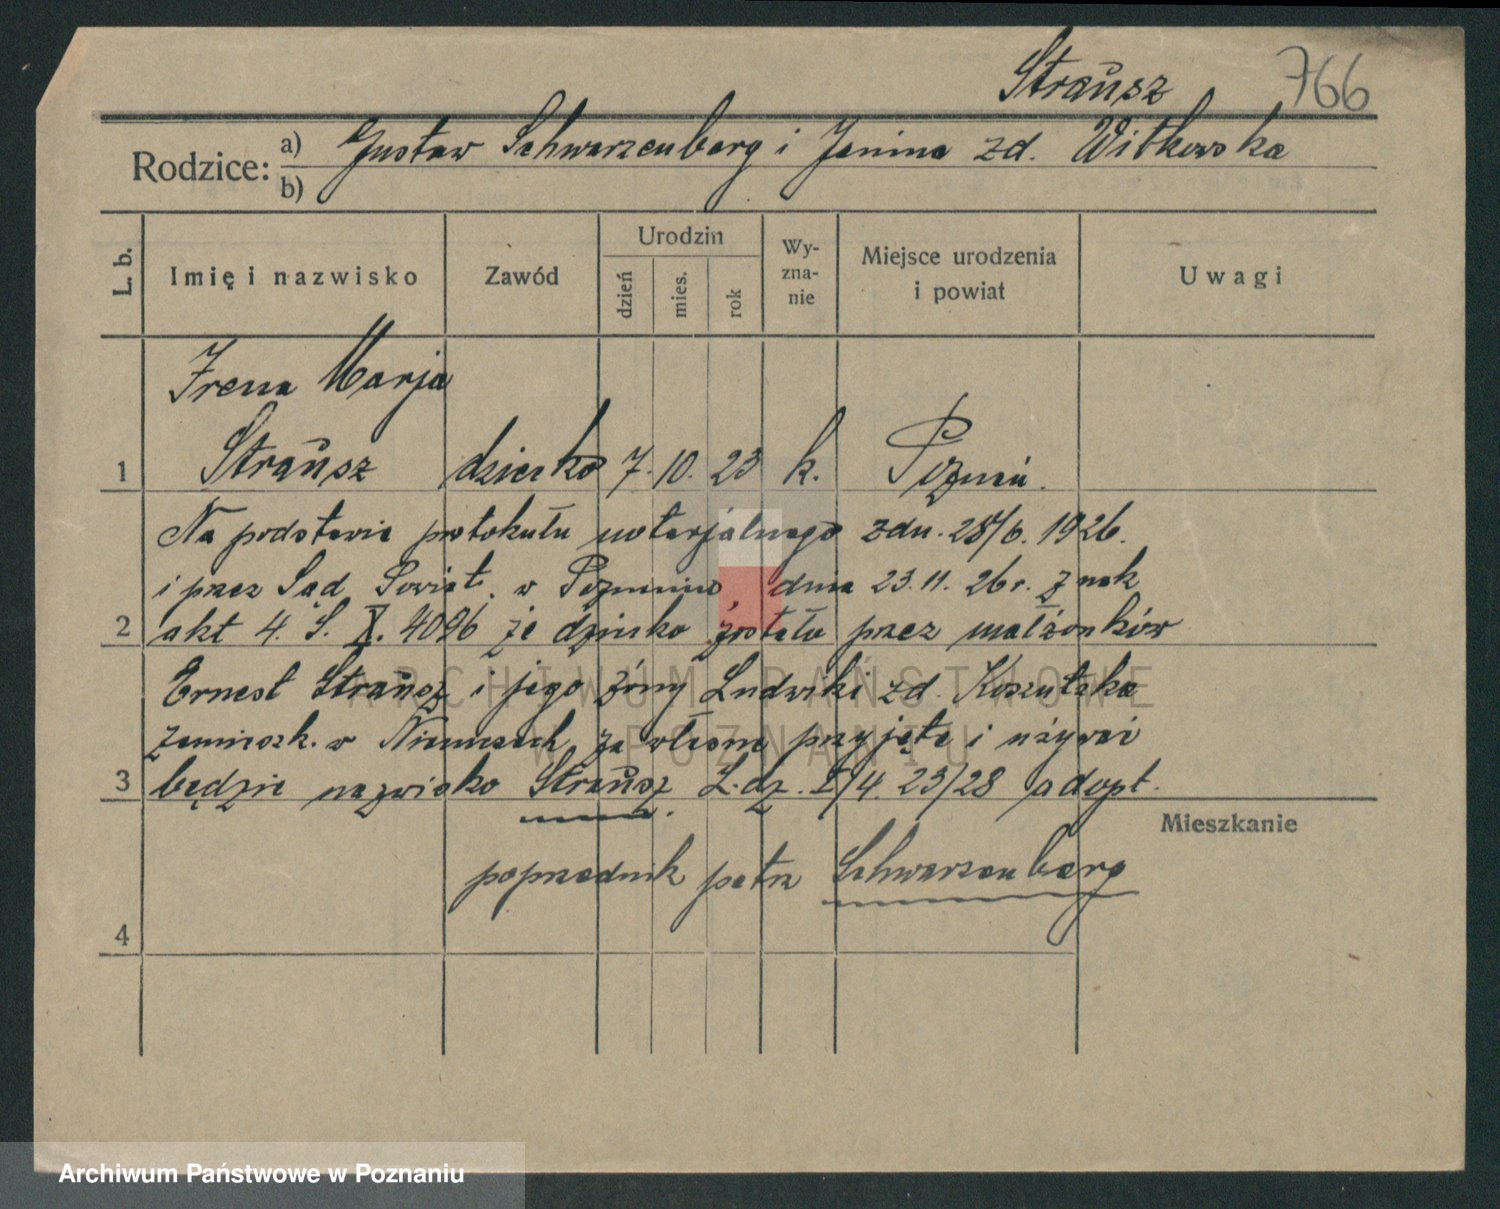 Strausz 766
Rodzice: a) Gustaw Schwarzenberg i Janina zd. Witkowska
b)
L. b. Imię i nazwisko Zawód Urodzin dzień mies. rok Wyznanie Miejsce urodzenia i powiat Uwagi
Irena Marja
1 Strausz dziecko 7. 10. 23 k. Poznań.
Na podstawie protokułu notarjalnego z dn. 28/6. 1926.
i przez Sąd Powiat. w Poznaniu, dnia 23.11.26 r. znak
2 akt 4. S. X. 4096 że dziecko zostało przez małżonków
Ernest Strausz i jego żony Ludwiki zd. Koszutska
zamieszk. w Niemczech za własne przyjęte i używać
3 będzie nazwisko Strausz. L.dz. I/4. 23/28 adopt.
Mieszkanie
poprzednik patrz Schwarzenberg
4
ARCHIWUM PAŃSTWOWE
W POZNANIU
Archiwum Państwowe w Poznaniu